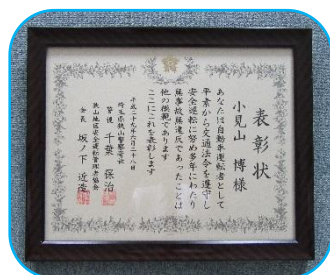 表彰状
小見山 博様
あなたは自動車運転者として
平素から交通法令を遵守し
安全運転に努め多年にわたり
無事故無違反であったことは
他の模範であります
ここにこれを表彰します
平成二十九年六月二十八日
埼玉県狭山警察署長
警視 千葉 保治
狭山地区安全運転管理者協会
会長 城ノ下 近造